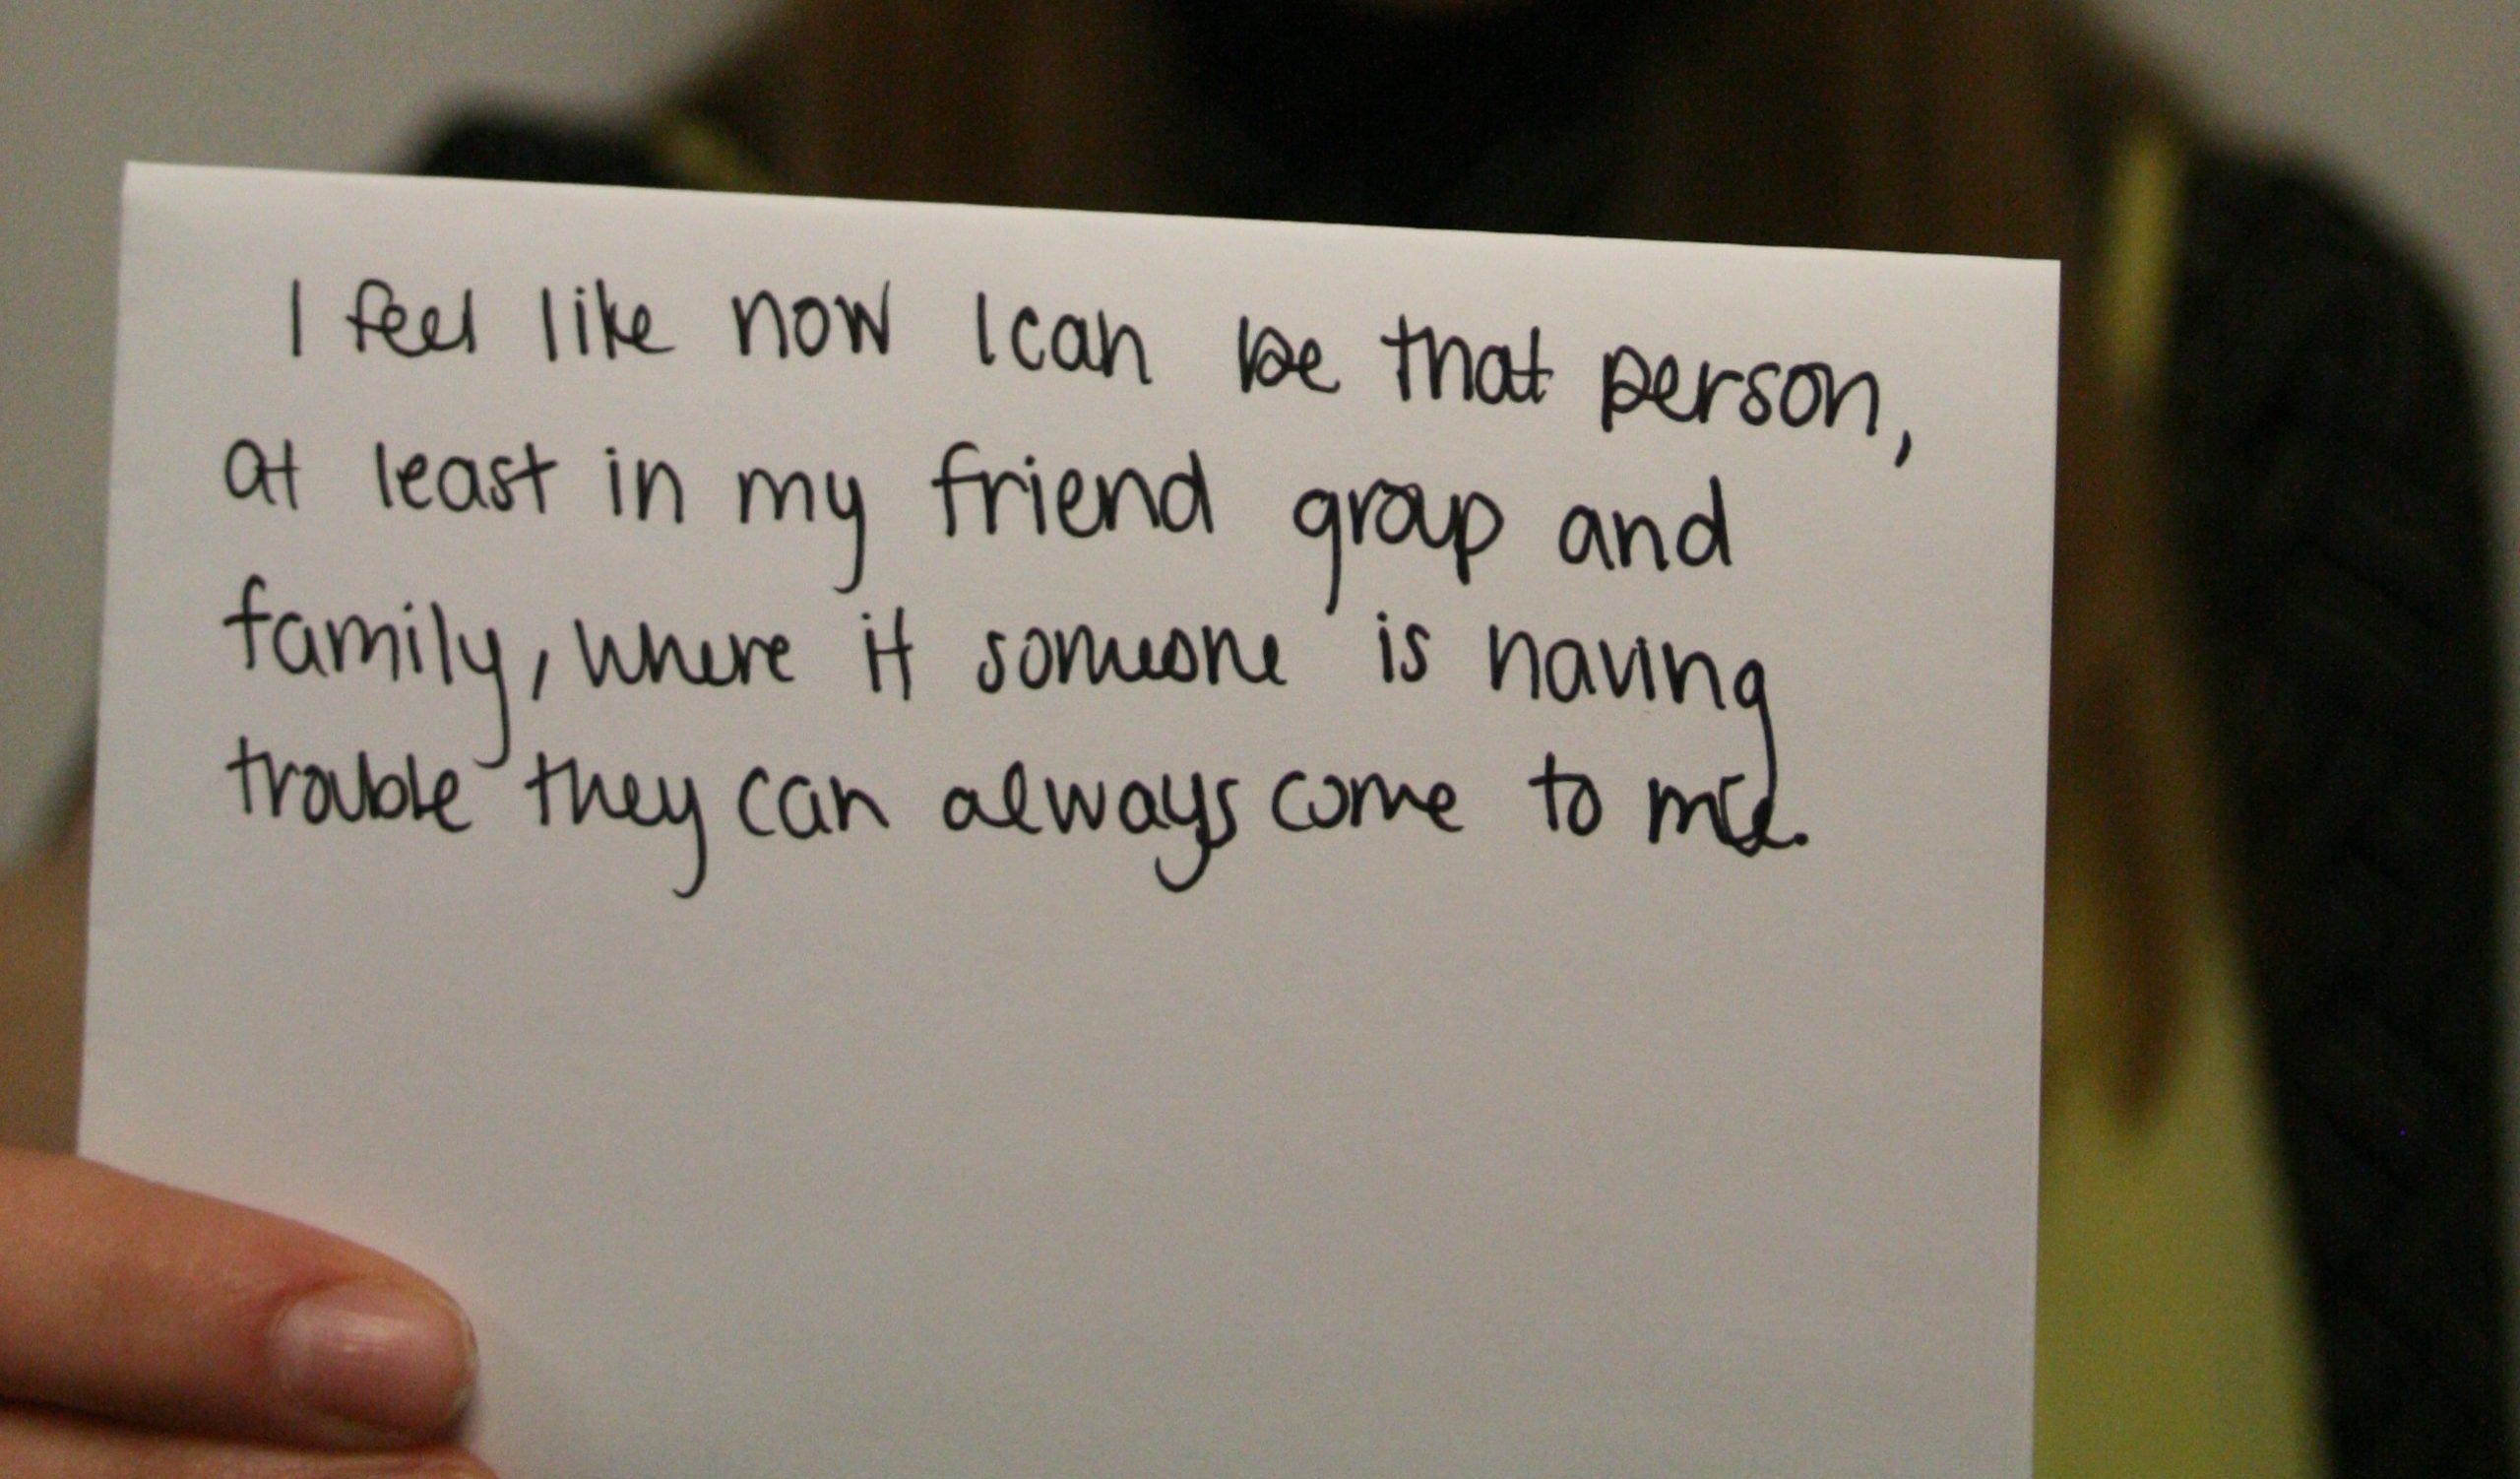 I feel like now I can be that person,
at least in my friend group and
family, where if someone is having
trouble they can always come to me.